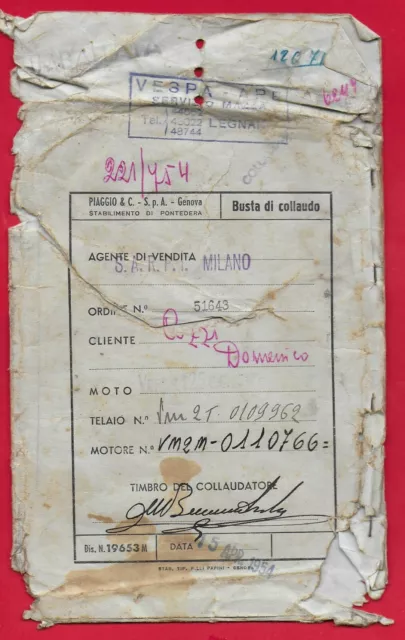 12671
6249
VESPA - APE
SERVIZIO
Tel. 45022 LEGNANO
48744
221/754
PIAGGIO & C. - S. p. A. - Genova
STABILIMENTO DI PONTEDERA
Busta di collaudo
AGENTE DI VENDITA
S. A. R. P. I. MILANO
ORDINE N.º 51643
CLIENTE Cozzi
Domenico
MOTO
TELAIO N.º Vm2T. 0109962
MOTORE N.º VM2M-0110766=
TIMBRO DEL COLLAUDATORE
Dis. N. 19653 M
DATA 5 APR. 1954